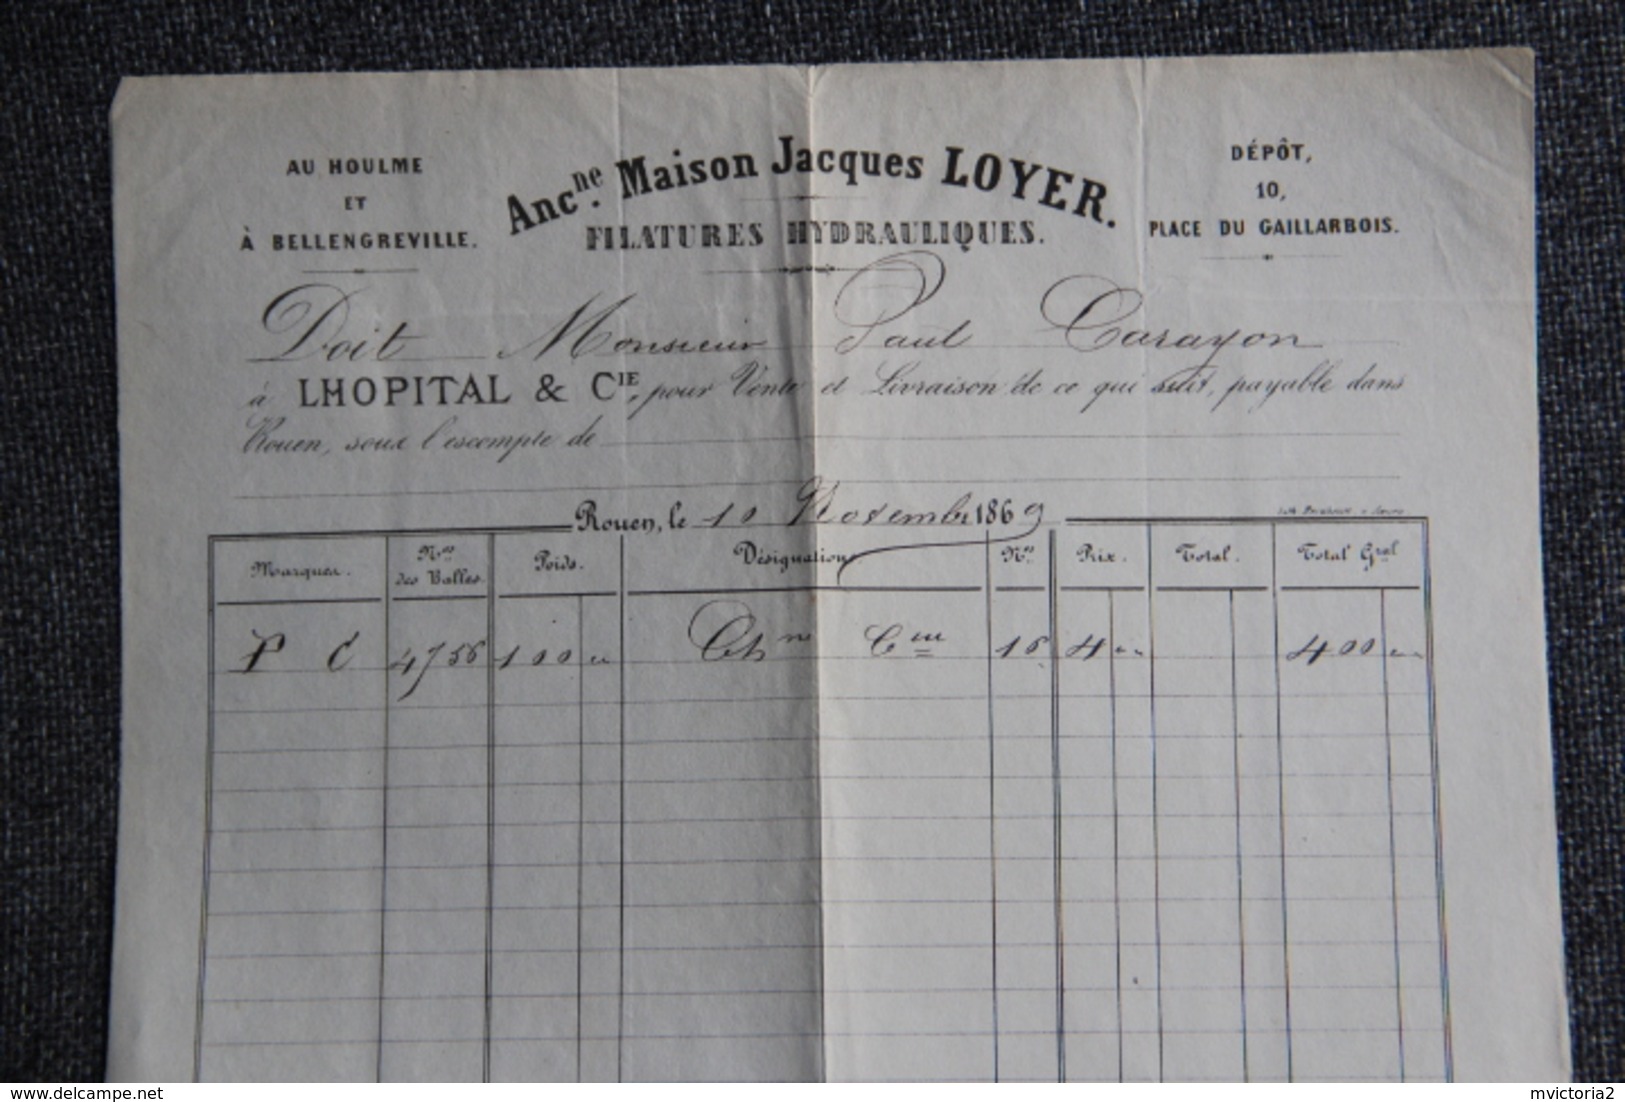 AU HOULME
ET
À BELLENGREVILLE.
Anc.ne Maison Jacques LOYER.
FILATURES HYDRAULIQUES.
DÉPÔT,
10,
PLACE DU GAILLARBOIS.
Doit Monsieur Paul Carayon
à LHOPITAL & CIE, pour Vente et Livraison de ce qui suit, payable dans
Rouen, sous l'escompte de
Rouen, le 10 Novembre 1869
Marques. Nos des Balles. Poids. Désignation Nos Prix. Total. Total Gral
P C 4756 100 " Chne Cne 16 4 " " 400 " "
delcampe.net
mvictoria2